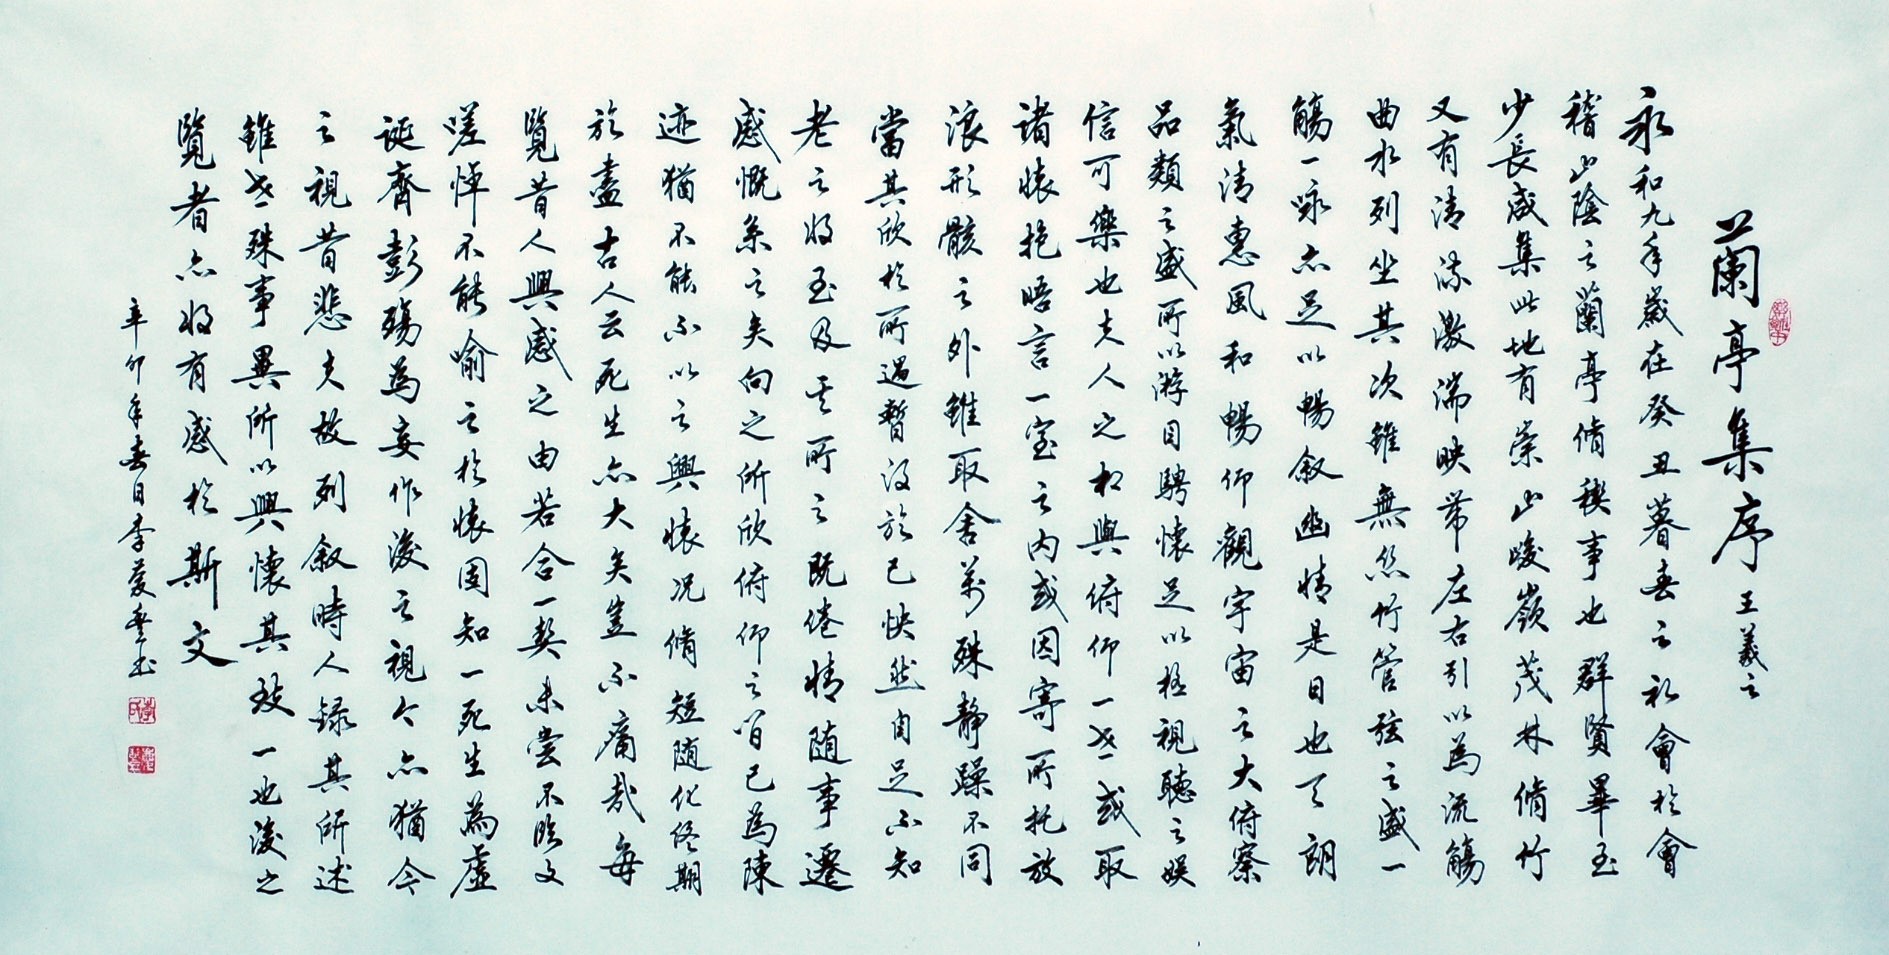 蘭亭集序 王羲之
永和九年歲在癸丑暮春之初會於會
稽山陰之蘭亭脩稧事也群賢畢至
少長咸集此地有崇山峻嶺茂林脩竹
又有清流激湍映帶左右引以為流觴
曲水列坐其次雖無絲竹管弦之盛一
觴一詠亦足以暢叙幽情是日也天朗
氣清惠風和暢仰觀宇宙之大俯察
品類之盛所以游目騁懷足以極視聽之娛
信可樂也夫人之相與俯仰一世或取
諸懷抱晤言一室之內或因寄所托放
浪形骸之外雖取舍萬殊靜躁不同
當其欣於所遇暫得於己怏然自足不知
老之將至及其所之既倦情隨事遷
感慨系之矣向之所欣俯仰之間已為陳
迹猶不能不以之興懷況脩短隨化終期
於盡古人云死生亦大矣豈不痛哉每
覽昔人興感之由若合一契未嘗不臨文
嗟悼不能喻之於懷固知一死生為虛
誕齊彭殤為妄作後之視今亦猶今
之視昔悲夫故列叙時人錄其所述
雖世殊事異所以興懷其致一也後之
覽者亦將有感於斯文
辛卯年春日李 書